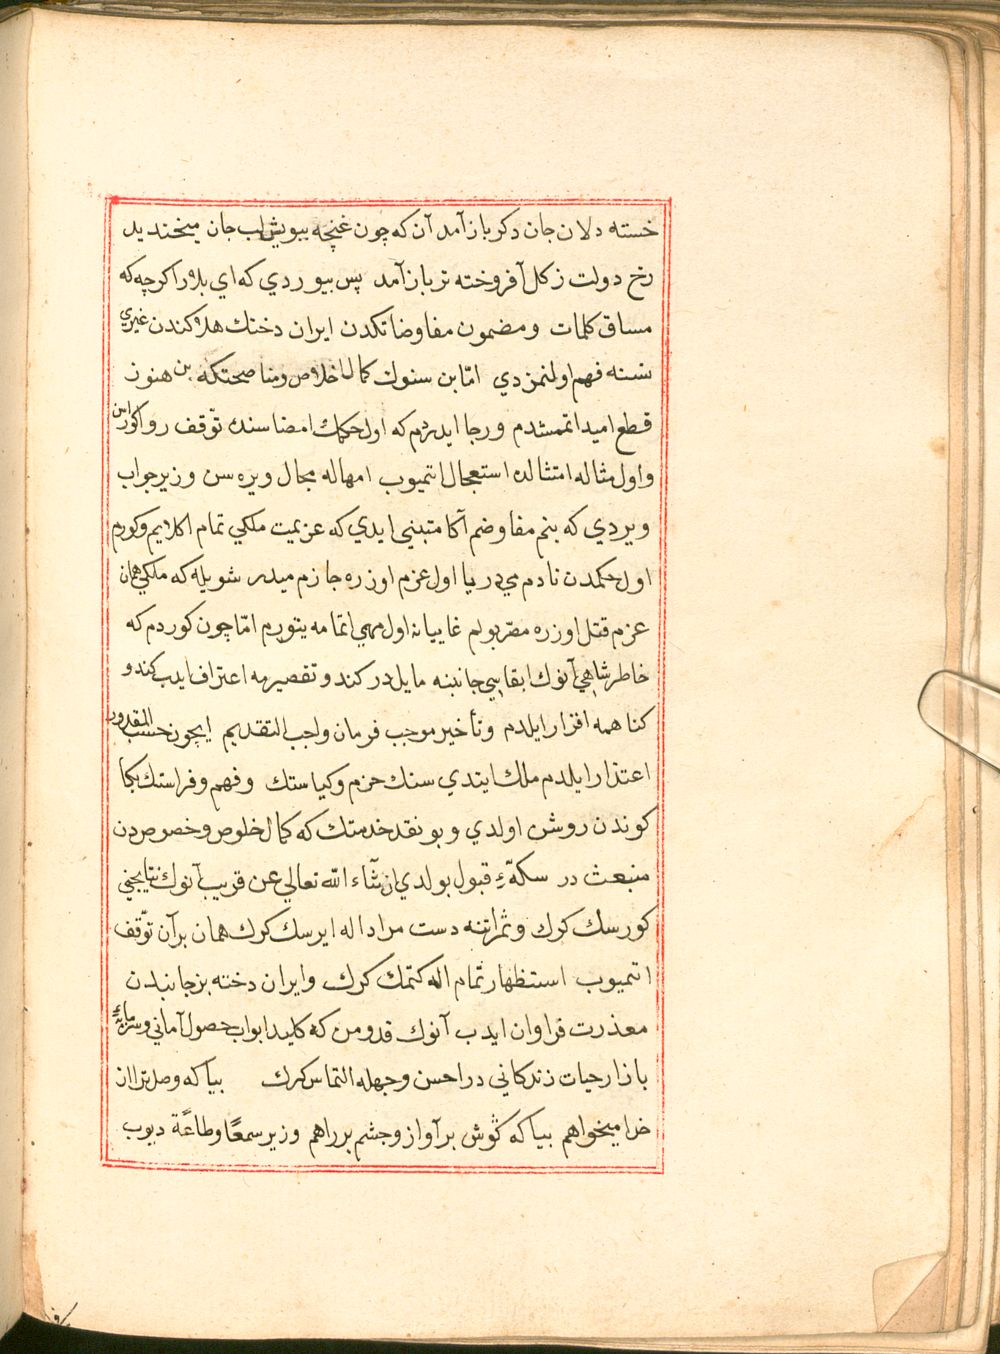 خسته دلان جان دكر باز آمد آن كه چون غنچه ببويش لب جان ميخنديد
رخ دولت ز كل آفروخته تر باز آمد پس بيوردي كه اي بلار اكرچه كه
مساق كلمات و مضمون مفاوضاتكدن ايران دختك هلاكندن غيري
نسنه فهم اولنمزدي امّا بن سنوك كمال اخلاص و مناصحتكه بن هنوز
قطع اميد اتمشدم و رجا ايدردم كه اول حكمك امضاسنده توّقف روا كوراسن
و اول مثاله امتثالده استعجال اتميوب امهاله مجال ويره سن وزير جواب
ويردي كه بنم مفاوضم آكا متبني ايدي كه عزيمت ملكي تمام اكلايم و كورم
اول حكمدن نادم مي در يا اول عزم اوزره جازم ميدر شويله كه ملكي همان
عزم قتل اوزره مقر بولم غاييانه اول مهمي اتمامه يتورم امّا چون كوردم كه
خاطر شاهي آنوك ابقاسي جانبنه مايلدر كندو تقصيرمه اعتراف ايدب كندو
كناهمه اقرار ايلدم و تأخير موجب فرمان واجب التقديم ايچون حسب المقدور
اعتذار ايلدم ملك ايتدي سنك حزم و كياستك و فهم و فراستك بكا
كوندن روشن اولدي و بو نقد خدمتك كه كمال خلوص و خصوصدن
منبعث در سكّهٔ قبول بولدي ان شآء الله تعالي عن قريب آنوك نتايجني
كورسك كرك و ثمراتنه دست مراد اله ايرسك كرك همان بر آن توّقف
اتميوب استظهار تمام اله كتمك كرك و ايران دخته بزجانبدن
معذرت فراوان ايدب آنوك قدومن كه كليد ابواب حصول آماني و سرمايهٔ
بازار حيات زندكاني در احسن وجهله التماس كرك بيا كه وصل ترا از
خدا ميخواهم بيا كه كوش بر آواز و چشم بر راهم وزير سمعًا و طاعةً ديوب